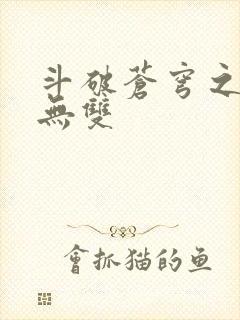 斗破蒼穹之
無雙
會抓猫的鱼